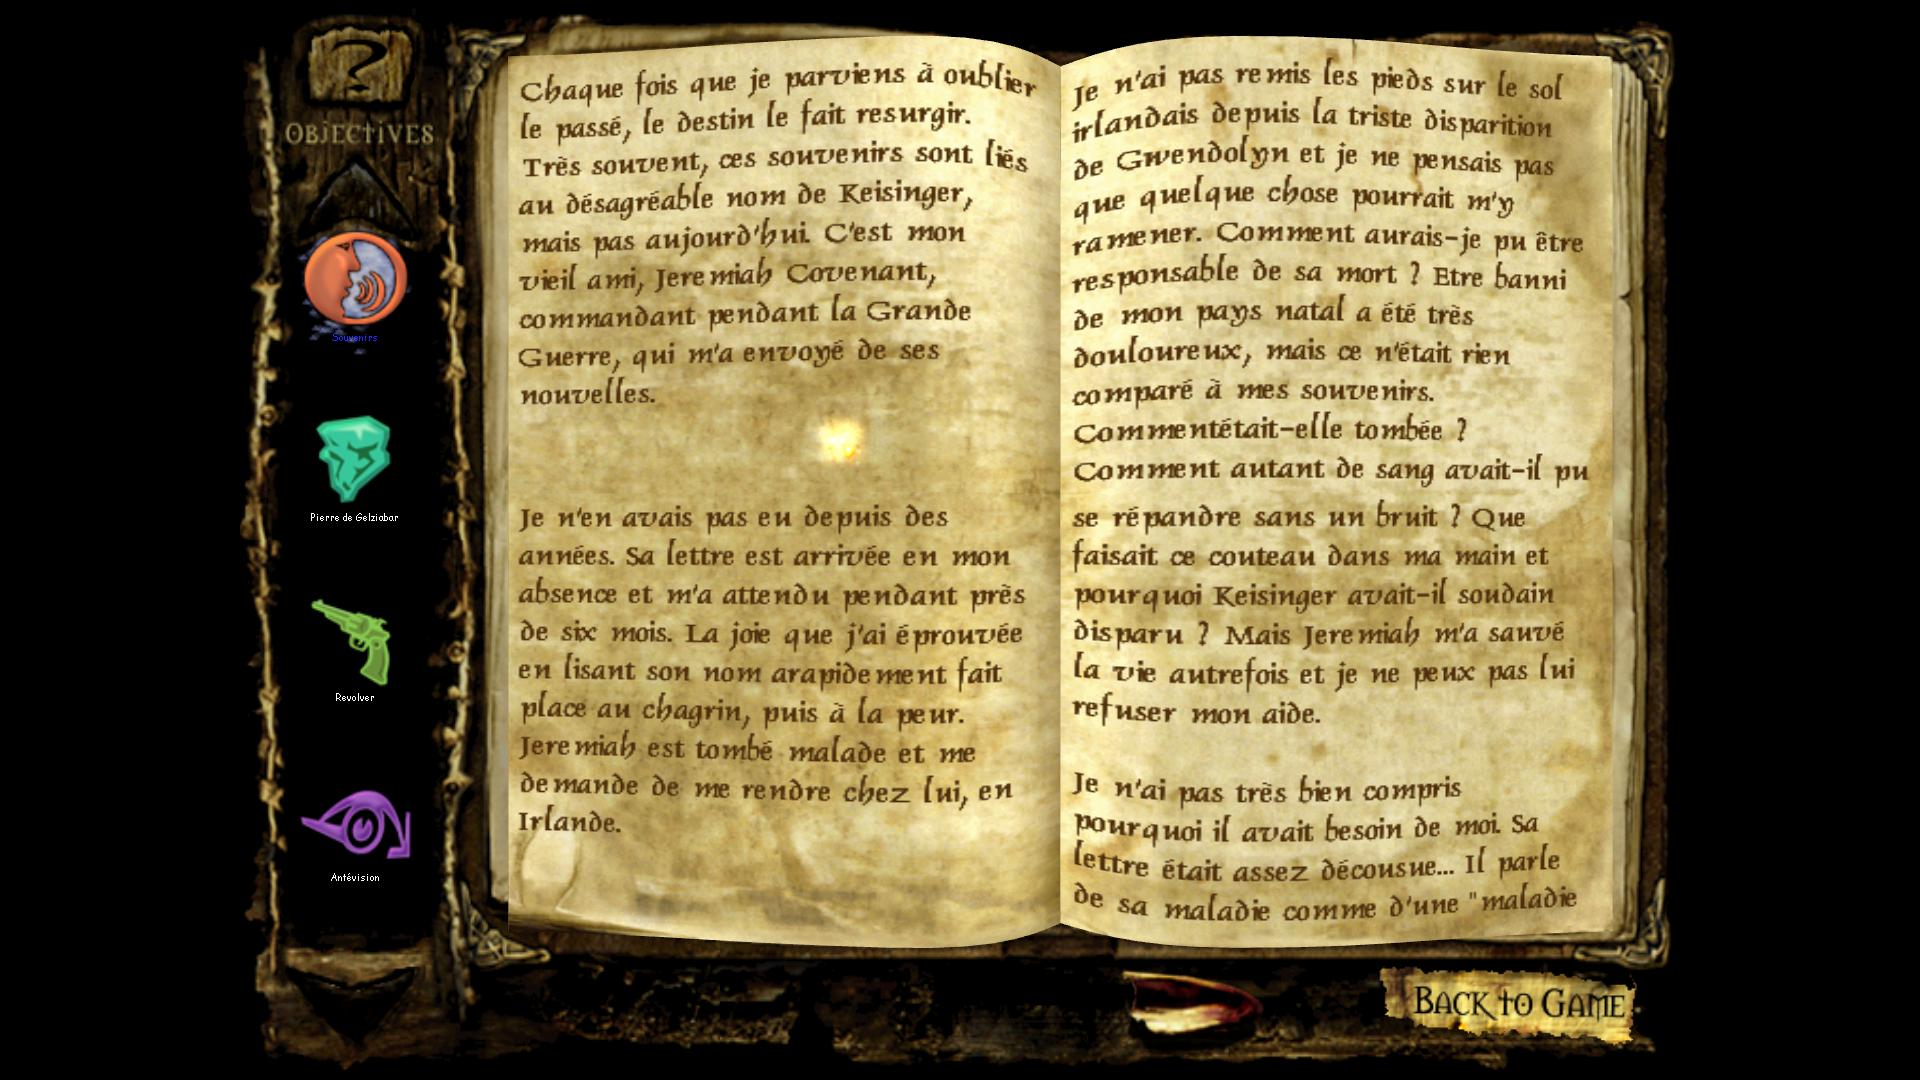 OBJECTIVES
Souvenirs
Pierre de Gelziabar
Revolver
Antévision
Chaque fois que je parviens à oublier
le passé, le destin le fait resurgir.
Très souvent, ces souvenirs sont liés
au désagréable nom de Keisinger,
mais pas aujourd'hui. C'est mon
vieil ami, Jeremiah Covenant,
commandant pendant la Grande
Guerre, qui m'a envoyé de ses
nouvelles.
Je n'en avais pas eu depuis des
années. Sa lettre est arrivée en mon
absence et m'a attendu pendant près
de six mois. La joie que j'ai éprouvée
en lisant son nom arapidement fait
place au chagrin, puis à la peur.
Jeremiah est tombé malade et me
demande de me rendre chez lui, en
Irlande.
Je n'ai pas remis les pieds sur le sol
irlandais depuis la triste disparition
de Gwendolyn et je ne pensais pas
que quelque chose pourrait m'y
ramener. Comment aurais-je pu être
responsable de sa mort ? Etre banni
de mon pays natal a été très
douloureux, mais ce n'était rien
comparé à mes souvenirs.
Commentétait-elle tombée ?
Comment autant de sang avait-il pu
se répandre sans un bruit ? Que
faisait ce couteau dans ma main et
pourquoi Keisinger avait-il soudain
disparu ? Mais Jeremiah m'a sauvé
la vie autrefois et je ne peux pas lui
refuser mon aide.
Je n'ai pas très bien compris
pourquoi il avait besoin de moi. Sa
lettre était assez décousue... Il parle
de sa maladie comme d'une "maladie
BACK TO GAME